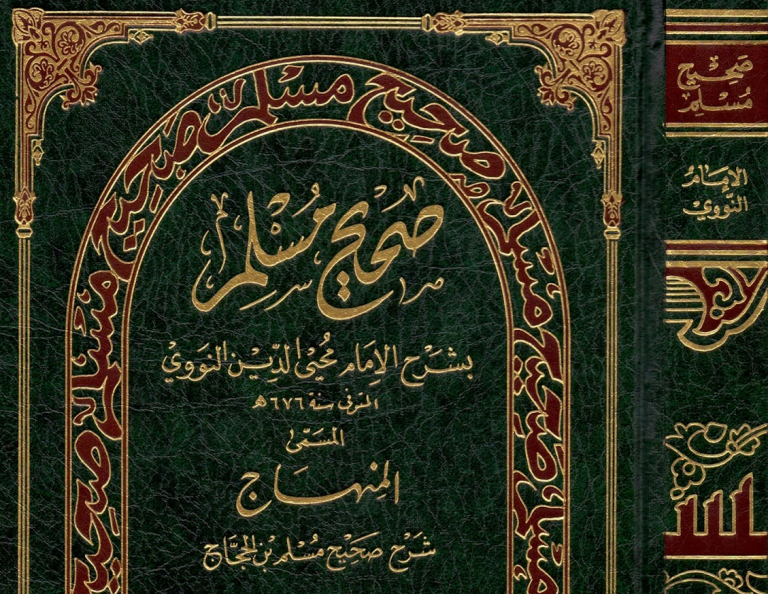 صحيح مسلم صحيح مسلم صحيح مسلم صحيح مسلم
صَحِيح مُسْلِم
بشرح الإمام محيي الدين النووي
المتوفى سنة ٦٧٦ هـ
المسمى
المنهاج
شرح صحيح مسلم بن الحجاج
صحيح
مسلم
الإمام
النووي